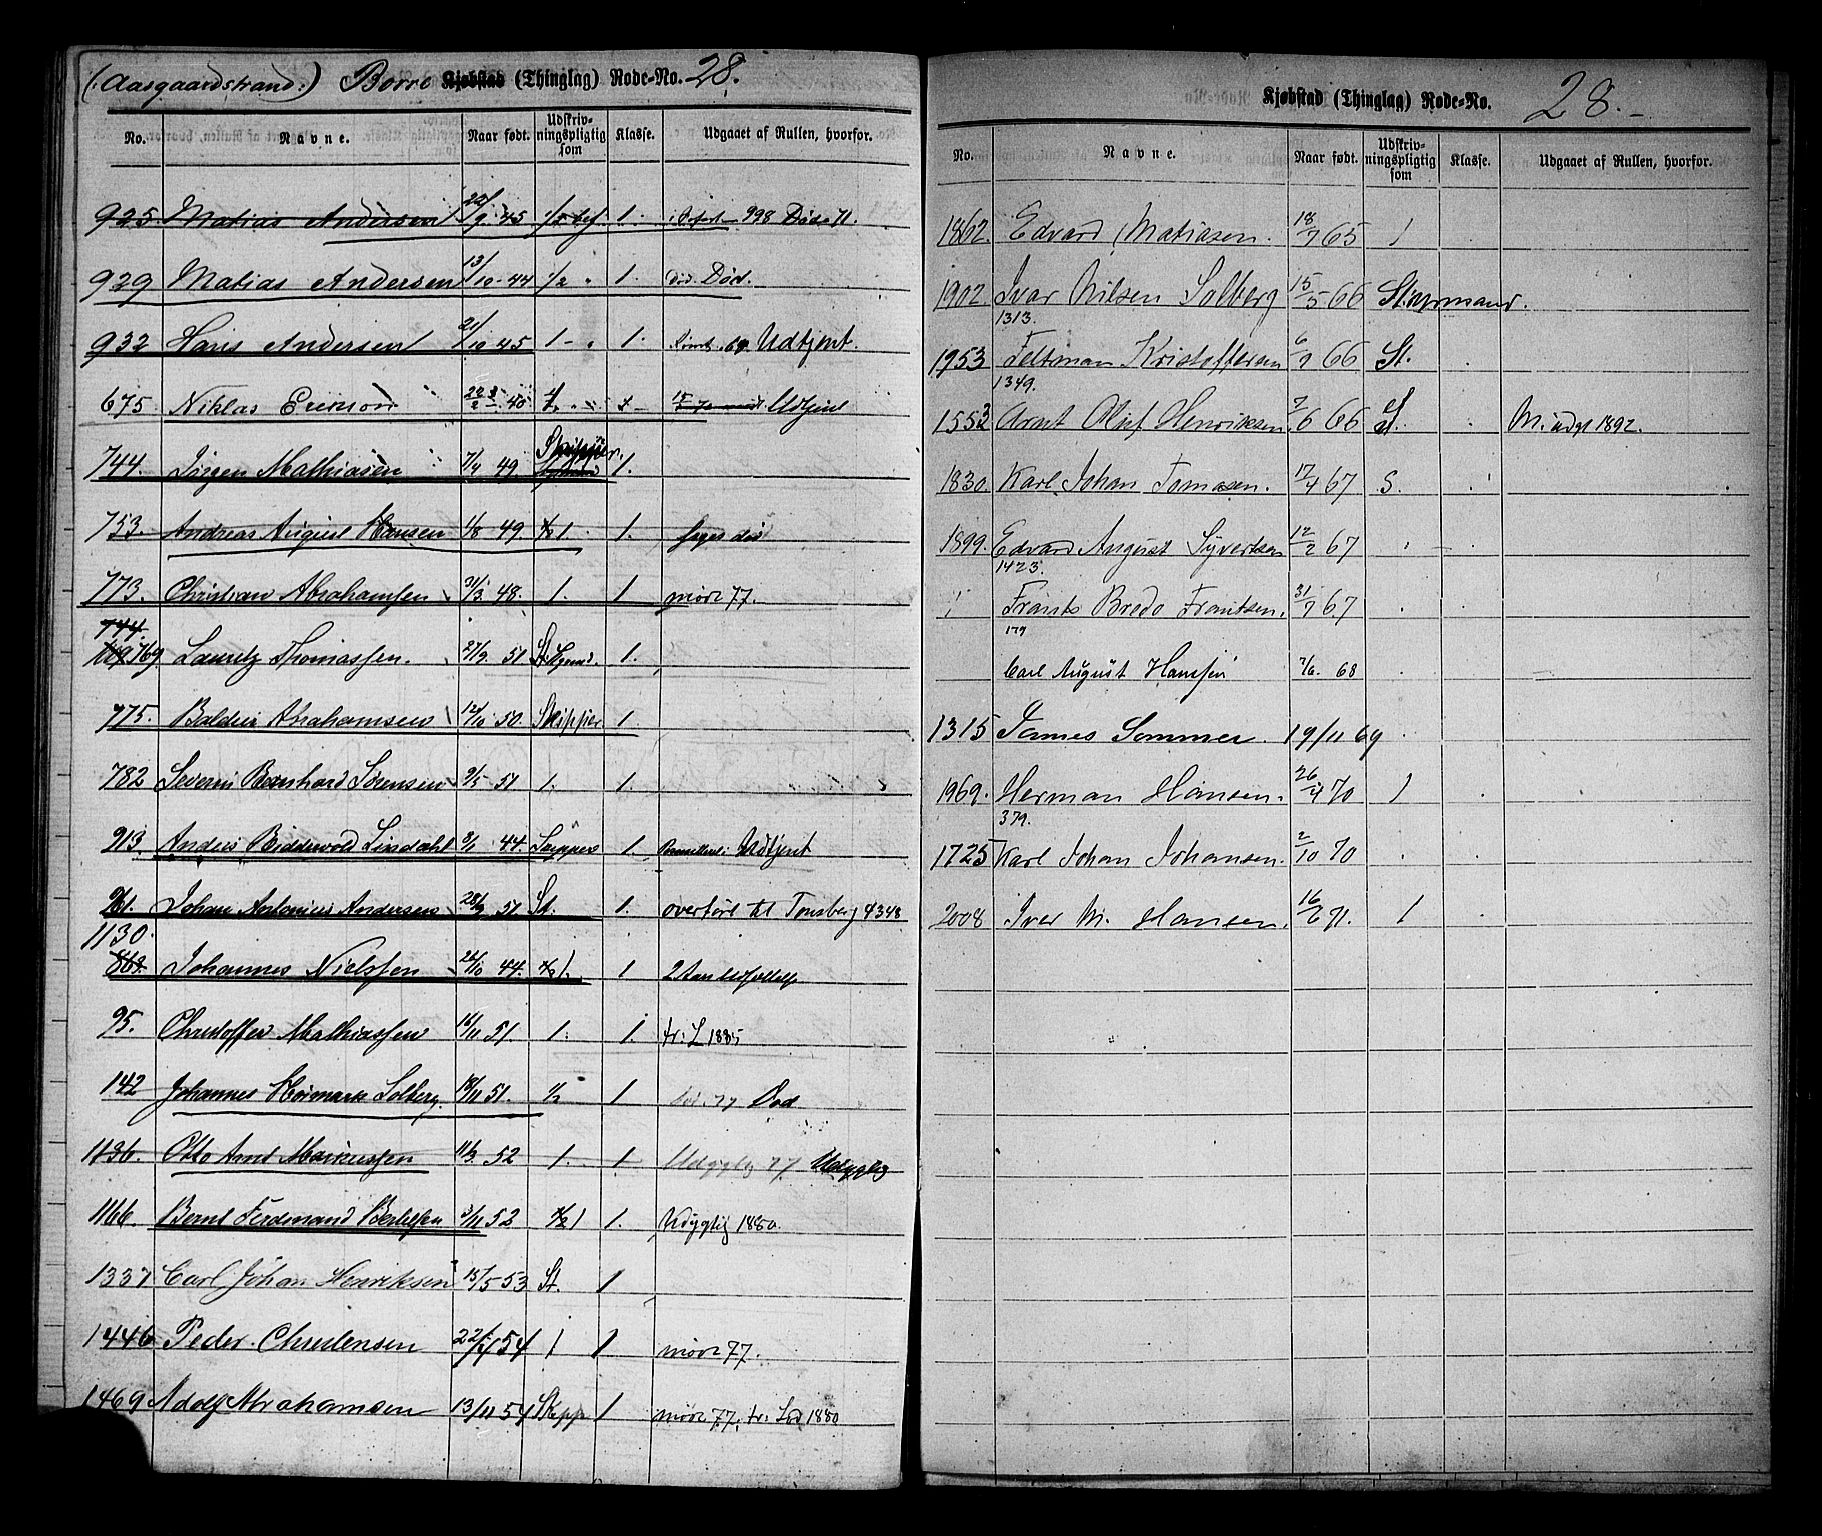 (: Aasgaardstrand :) Borre Kjøbstad (Thinglag) Rode-No. 28.
No. Navne. Naar født. Udskriv-ningspligtig som Klasse. Udgaaet af Rullen, hvorfor.
925. Matias Andersen 22/9 45 1. 998 Død 71.
929 Matias Andersen 13/10 44 1/2 " 1. Død.
932 Hans Andersen 21/10 45 1 - " 1. 69 Udtjent.
675. Niklas Erikson 40 Udtjent
744. Jørgen Mathiasen 7/4 49. Skipper. 1.
753. Andreas August Hansen 1/8 49. 1. 1.
773. Christian Abrahamsen 31/3 48. 1. 1 77.
744. 769. Lauritz Thomassen. 27/9. 51 1.
775. Abrahamsen 12/10 50. Skipper 1.
782 Severin Bernhard Sørensen 9/5 51 1. 1.
913. Anders Lindahl 8/1 44. Skipper 1. Udtjent
961. Johan Antonius Andersen 28/9 51 St. 1. overført til Tønsberg 4348
1130. 869. Johannes Nielssen 26/10 44. 1. 1
95. Christoffer Mathiassen 16/11 51. 1. 1. fr: L 1885
142 Johannes Solberg. 18/11 51. 1/2 1 77 Død
1136. Otto Arnt 11/3. 52 1. 1 Udygtig 77. Udygtig
1166. Bernt Ferdinand Bertelsen 3/11 52 1 1. Udygtig 1880.
1337 Carl Johan Henriksen 15/5 53 St. 1
1446 Peder Christensen 54 1 1 77.
1469 Adolf Abrahamsen 13/11 54 Skipp 1 77. fr: 1880
Kjøbstad (Thinglag) Rode-No. 28.
No. Navne. Naar født. Udskriv-ningspligtig som Klasse. Udgaaet af Rullen, hvorfor.
1862. Edvard Matiasen. 18/7 65 1
1902. Ivar Nilsen Solberg 15/5 66 Styrmand.
1313.
1953 Feltman Kristoffersen 6/9 66 St.
1349.
1553 Arnt Oluf Henriksen. 7/6 66 St. M. udgt 1892.
1830. Karl Johan Tomasen. 17/4 67 S.
1899. Edvard August Syvertsen 12/2 67
1423.
Frants Bredo Frantsen. 31/7 67
179
Carl August Hansen 7/6. 68
1315 James Sommer. 19/11 69
1969. Herman Hansen. 26/4 70 1
379.
1725 Karl Johan Johansen. 2/10 70
2008 Iver M. Hansen. 16/6 71. 1